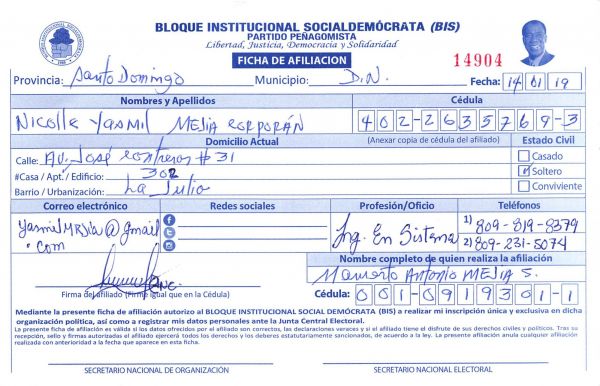 BLOQUE INSTITUCIONAL SOCIALDEMÓCRATA (BIS)
PARTIDO PEÑAGOMISTA
Libertad, Justicia, Democracia y Solidaridad
FICHA DE AFILIACION
14904
Provincia: Santo Domingo Municipio: D.N. Fecha: 14 01 19
Nombres y Apellidos Cédula
Nicolle Yasmil MEJIA CORPORÁN 402-2635769-3
Domicilio Actual (Anexar copia de cédula del afiliado) Estado Civil
Calle: AV. José Contreras # 31 Casado
#Casa / Apt. / Edificio: 302 Soltero
Barrio / Urbanización: La Julia Conviviente
Correo electrónico Redes sociales Profesión/Oficio Teléfonos
YasmilMejia@gmail.com Ing. En Sistema 1) 809-819-8379
2) 809-231-5074
Nombre completo de quien realiza la afiliación
Mamerto Antonio MEJIA S.
Firma del afiliado (Firme igual que en la Cédula) Cédula: 001-0919301-1
Mediante la presente ficha de afiliación autorizo al BLOQUE INSTITUCIONAL SOCIAL DEMÓCRATA (BIS) a realizar mi inscripción única y exclusiva en dicha
organización política, así como a registrar mis datos personales ante la Junta Central Electoral.
La presente ficha de afiliación es válida si los datos ofrecidos por el afiliado son correctos, las declaraciones veraces y si el afiliado tiene el disfrute de sus derechos civiles y políticos. Tras su
recepción, sello y firmas autorizadas el afiliado ejercerá todos los derechos y los deberes estatutariamente sancionados, de acuerdo a la ley. La presente afiliación anula cualquier afiliación
realizada con anterioridad a la fecha que aparece en esta ficha.
SECRETARIO NACIONAL DE ORGANIZACIÓN SECRETARIO NACIONAL ELECTORAL